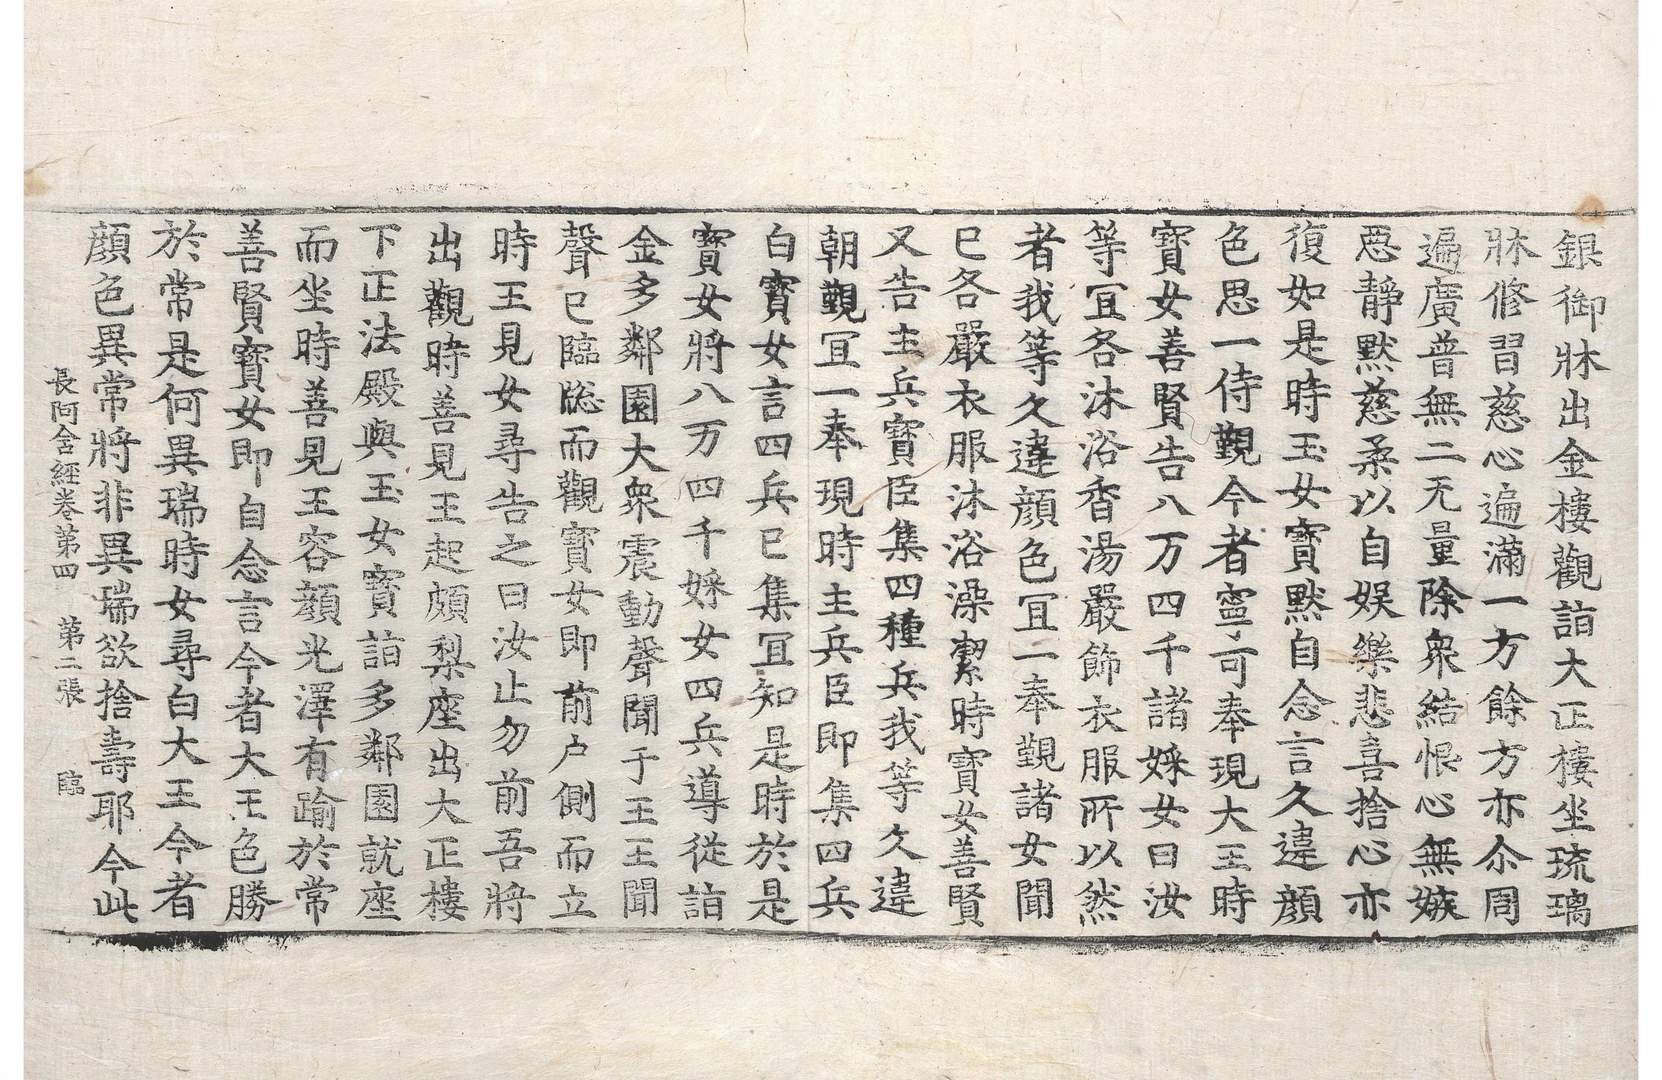 銀御牀出金樓觀詣大正樓坐琉璃
牀修習慈心遍滿一方餘方亦尒周
遍廣普無二无量除衆結恨心無嫉
惡靜默慈柔以自娛樂悲喜捨心亦
復如是時玉女寶默自念言久違顔
色思一侍覲今者寧可奉現大王時
寶女善賢告八万四千諸婇女曰汝
等冝各沐浴香湯嚴飾衣服所以然
者我等久違顔色冝一奉覲諸女聞
已各嚴衣服沐浴澡潔時寶女善賢
又告主兵寶臣集四種兵我等久違
朝覲冝一奉現時主兵臣即集四兵
白寶女言四兵已集冝知是時於是
寶女將八万四千婇女四兵導從詣
金多鄰園大衆震動聲聞于王王聞
聲已臨牕而觀寶女即前户側而立
時王見女尋告之曰汝止勿前吾將
出觀時善見王起頗梨座出大正樓
下正法殿與玉女寶詣多鄰園就座
而坐時善見王容顔光澤有踰於常
善賢寶女即自念言今者大王色勝
於常是何異瑞時女尋白大王今者
顔色異常將非異瑞欲捨壽耶今此
長阿含經卷第四　第二張　臨